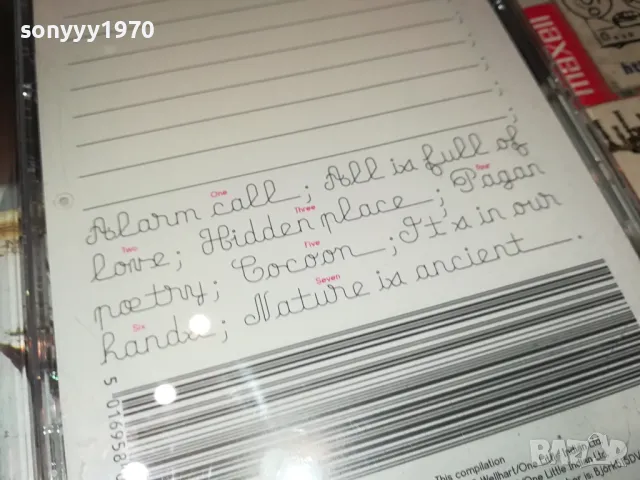 sonyyy1970
maxell
One
Alarm call; All is full of
Two Three Four
love; Hidden place; Pagan
Five
poetry; Cocoon; It's in our
Six Seven
hands; Nature is ancient.
5 016958
This compilation
Wellhart/One Little Indian Ltd
One Little Indian Ltd
is: Björk